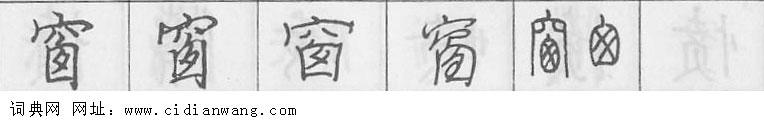 窗 窗 窗 窗 窗 囱
词典网 网址：www.cidianwang.com